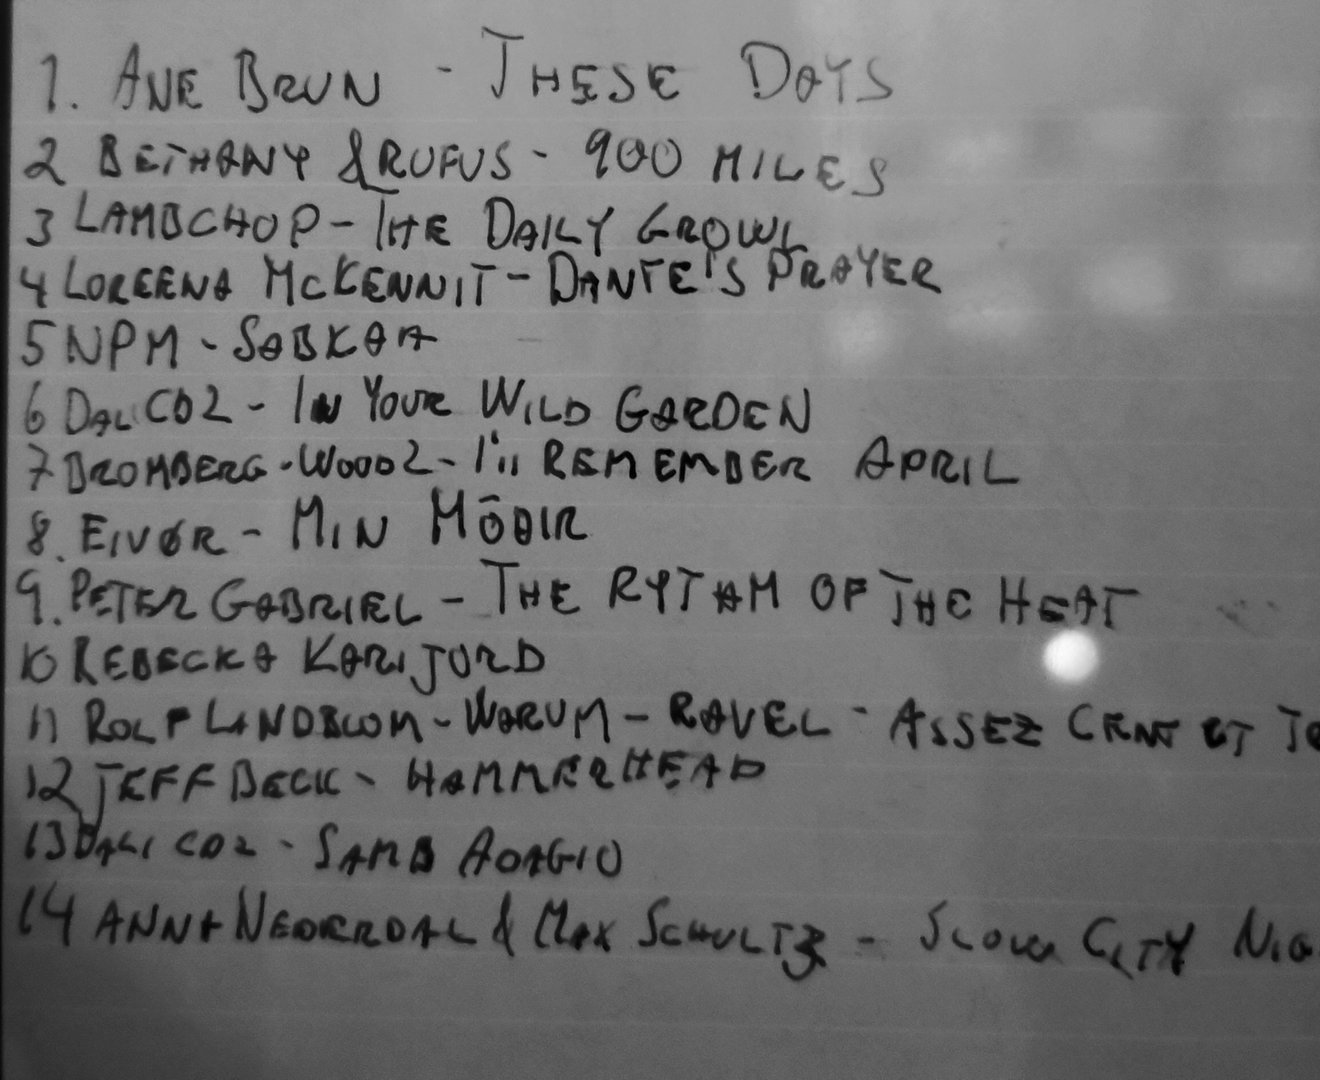 1. ANE BRUN - THESE DAYS
2 BETHANY & RUFUS - 900 MILES
3 LAMBCHOP - THE DAILY GROWL
4 LOREENA MCKENNIT - DANTE'S PRAYER
5 NPM - SABKAA
6 DALI CD2 - IN YOUR WILD GARDEN
7 BROMBERG - WOOD2 - I'll REMEMBER APRIL
8. EIVØR - MIN MŌDIR
9. PETER GABRIEL - THE RYTHM OF THE HEAT
10 REBECKA KARIJORD
11 ROLF LINDBLOM - WARUM - RAVEL - ASSEZ ET
12 JEFF BECK - HAMMERHEAD
13 DALI CD2 - SAMB ADAGIO
14 ANNA & MAX SCHULTZ - SLOW CITY